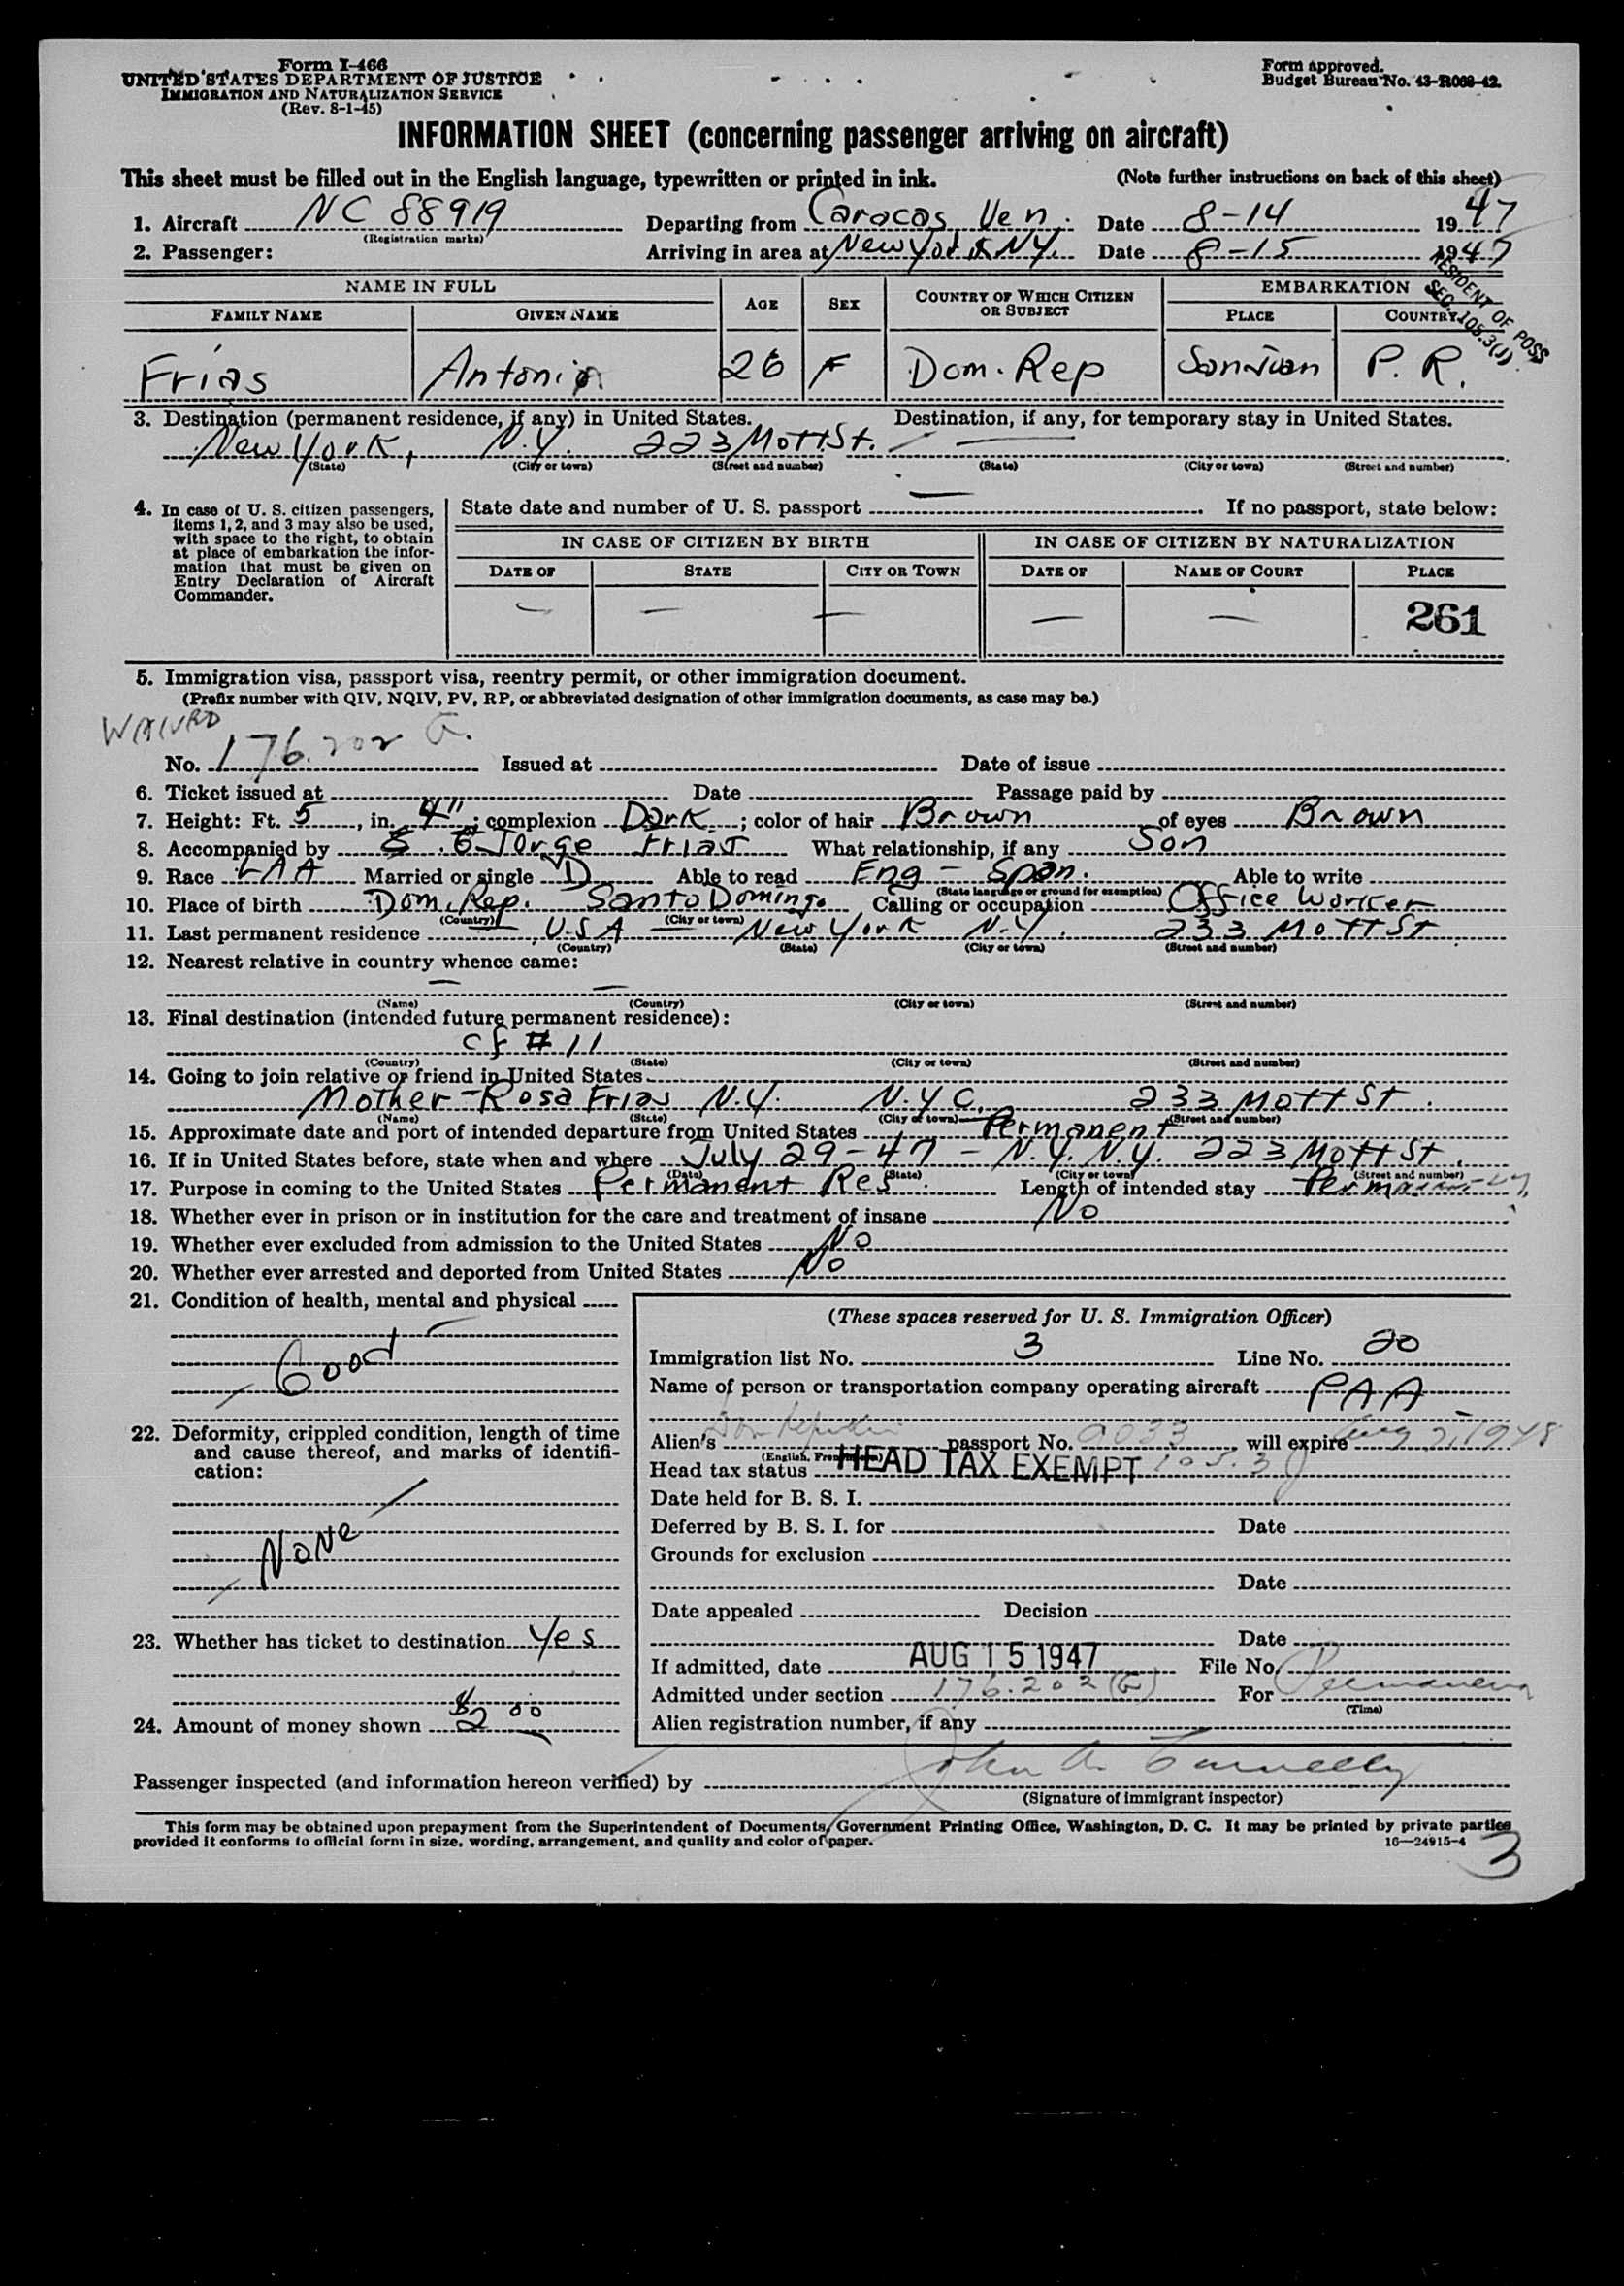 Form I-466
UNITED STATES DEPARTMENT OF JUSTICE
IMMIGRATION AND NATURALIZATION SERVICE
(Rev. 8-1-45)
Form approved.
Budget Bureau No. 43-R068-42.
INFORMATION SHEET (concerning passenger arriving on aircraft)
This sheet must be filled out in the English language, typewritten or printed in ink. (Note further instructions on back of this sheet)
1. Aircraft NC 88919 Departing from Caracas, Ven. Date 8-14 1947
(Registration marks)
2. Passenger: Arriving in area at New York NY. Date 8-15 1947
RESIDENT OF POSS
SEC. 105.3(J)
NAME IN FULL AGE SEX COUNTRY OF WHICH CITIZEN OR SUBJECT EMBARKATION
FAMILY NAME GIVEN NAME PLACE COUNTRY
Frias Antonia 26 F Dom. Rep San Juan P.R.
3. Destination (permanent residence, if any) in United States. Destination, if any, for temporary stay in United States.
New York, N.Y. 223 Mott St. —
(State) (City or town) (Street and number) (State) (City or town) (Street and number)
4. In case of U. S. citizen passengers, items 1, 2, and 3 may also be used, with space to the right, to obtain at place of embarkation the information that must be given on Entry Declaration of Aircraft Commander.
State date and number of U. S. passport — If no passport, state below:
IN CASE OF CITIZEN BY BIRTH IN CASE OF CITIZEN BY NATURALIZATION
DATE OF STATE CITY OR TOWN DATE OF NAME OF COURT PLACE
— — — — — 261
5. Immigration visa, passport visa, reentry permit, or other immigration document.
(Prefix number with QIV, NQIV, PV, RP, or abbreviated designation of other immigration documents, as case may be.)
WAIVED
No. 176.202 G. Issued at Date of issue
6. Ticket issued at Date Passage paid by
7. Height: Ft. 5, in. 4"; complexion Dark; color of hair Brown of eyes Brown
8. Accompanied by Jorge Frias What relationship, if any Son
9. Race LAA Married or single D Able to read Eng - Span. Able to write
(State language or ground for exemption)
10. Place of birth Dom. Rep. Santo Domingo Calling or occupation Office Worker
(Country) (City or town)
11. Last permanent residence U.S.A — New York N.Y. 233 Mott St
(Country) (State) (City or town) (Street and number)
12. Nearest relative in country whence came:
— —
(Name) (Country) (City or town) (Street and number)
13. Final destination (intended future permanent residence):
cf # 11
(Country) (State) (City or town) (Street and number)
14. Going to join relative or friend in United States
Mother - Rosa Frias N.Y. N.Y.C. 233 Mott St.
(Name) (State) (City or town) (Street and number)
15. Approximate date and port of intended departure from United States Permanent
16. If in United States before, state when and where July 29-47 - N.Y. N.Y. 223 Mott St.
(Date) (State) (City or town) (Street and number)
17. Purpose in coming to the United States Permanent Res. Length of intended stay
18. Whether ever in prison or in institution for the care and treatment of insane No
19. Whether ever excluded from admission to the United States No
20. Whether ever arrested and deported from United States No
21. Condition of health, mental and physical
Good
22. Deformity, crippled condition, length of time and cause thereof, and marks of identification:
None
23. Whether has ticket to destination Yes
24. Amount of money shown $2 00
(These spaces reserved for U. S. Immigration Officer)
Immigration list No. 3 Line No. 20
Name of person or transportation company operating aircraft PAA
Alien's passport No. 9033 will expire Aug 2, 1948
Head tax status HEAD TAX EXEMPT 105.3 J
Date held for B. S. I.
Deferred by B. S. I. for Date
Grounds for exclusion
Date
Date appealed Decision
Date
If admitted, date AUG 15 1947 File No.
Admitted under section 176.202(G) For Permanent
(Time)
Alien registration number, if any
Passenger inspected (and information hereon verified) by
(Signature of immigrant inspector)
This form may be obtained upon prepayment from the Superintendent of Documents, Government Printing Office, Washington, D. C. It may be printed by private parties
provided it conforms to official form in size, wording, arrangement, and quality and color of paper. 16—24915-4
3